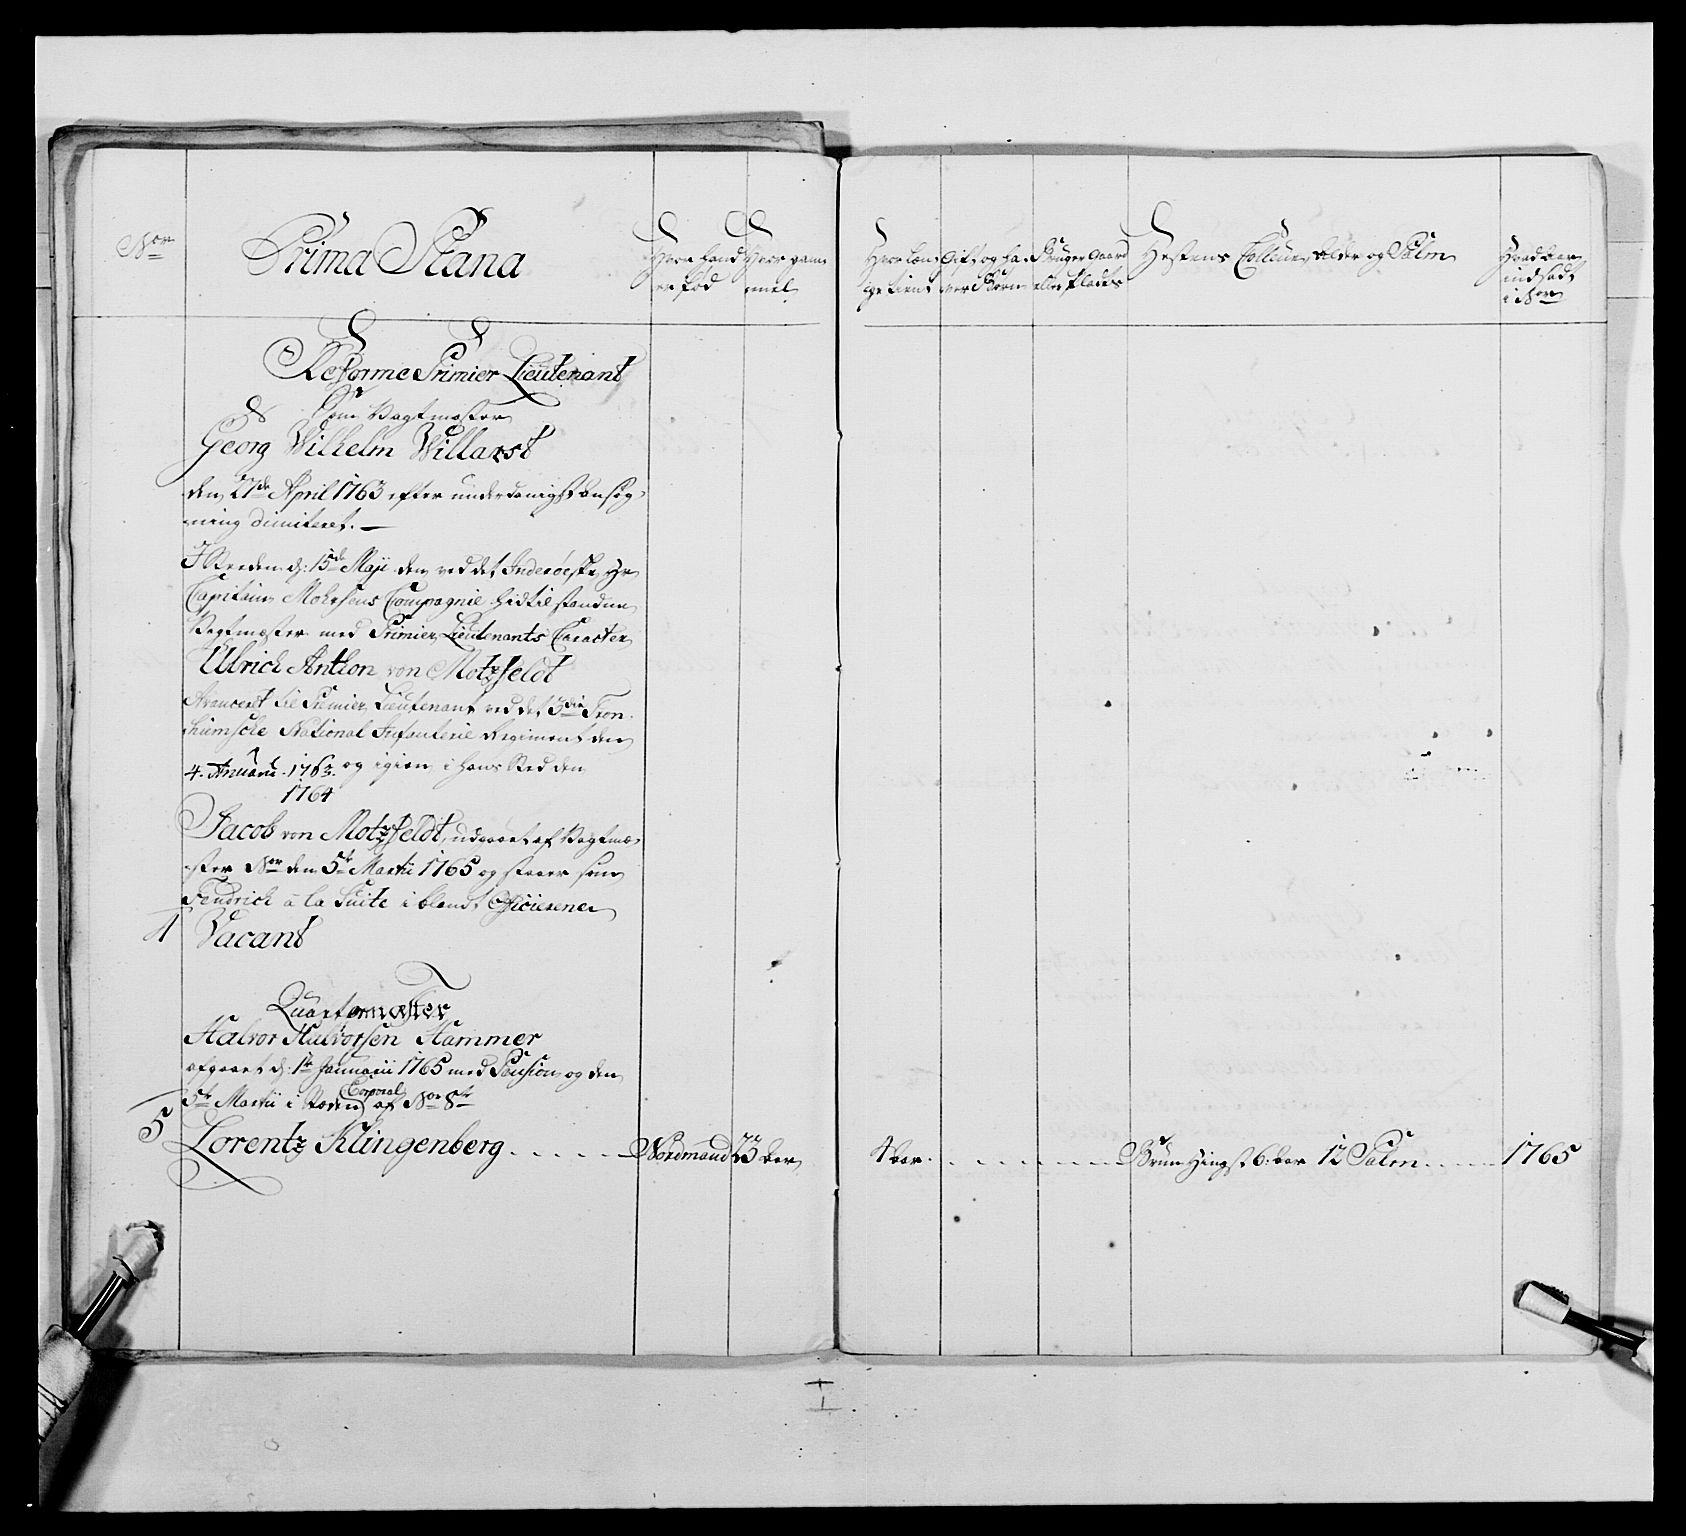 No
Prima Plana
Hvor Land
er fød
Hvor gam
mel
Hvor læn
ge tient
Gift og ha
ver Børn
Bruger Gaard
eller Plads
Hestens Colleur, Alder og Palm
Hvad Aar
indsadt
i No
Reforme Primier Lieutenant
som Vagtmester
Georg Wilhelm Willarst
den 27de April 1763 efter underdanigst Ansøg-
ning dimiteret. —
I Steden d: 15de Maji den ved det Inderøeske Hr
Capitain Compagnie hidtil standne
Vagtmester med Primier Lieutenants Caracter
Ulrich Anthon von Motzfeldt
Avanceret til Premier Lieutenant ved det 3die Tron-
hiemsche National Infanterie Regiment den
4. 1763. og igien i hans Sted den
1764
Jacob von Motzfeldt, udgaaet af Vagtme-
ster No den 5te Martii 1765 og staaer som
Fendrich a la Suite i blandt Officiererne
4 Vacant
Quartermester
Halvor Halvorsen Hammer
afgaaet d: 1te Januarii 1765 med Pension og den
5te Martii i Steden Corporal af No 8te
5 Lorentz Klingenberg Nordmand 23 Aar 4 Aar Bruun Hingst 6: Aar 12 Palm 1765